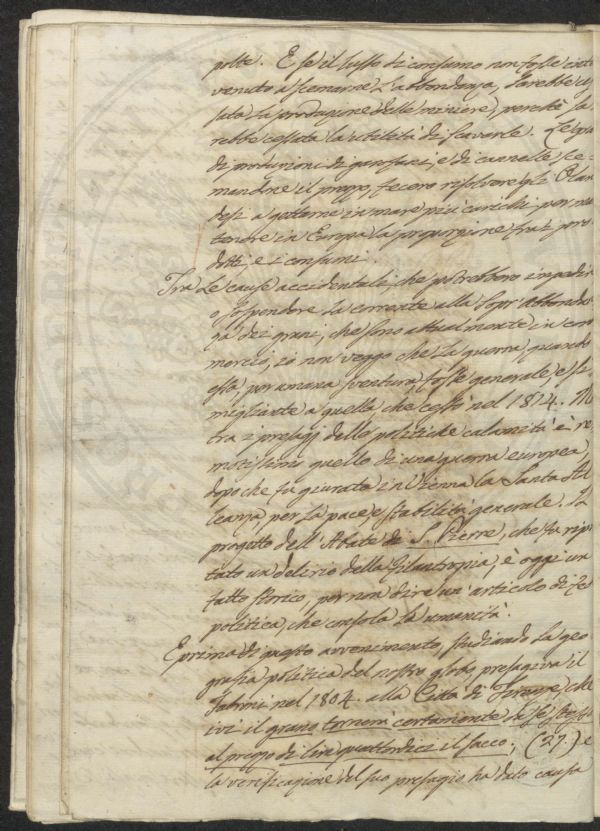 polte. E se il lusso di consumo non fosse
venuto a scemarne l'abbondanza, sarebbe
sata la produzione delle miniere, perchè sa
rebbe cessata la utilità di scavarle. Le
di produzioni di garofani, e di cannelle sce
mandone il prezzo, fecero risolvere gli Olan
desi a gettarne in mare più carichi, per
tenere in Europa la proporzione fra i pro
dotti, e i consumi.
Tra le cause accidentali, che potrebbero impedire
o sospendere la corrente alla sopr'abbondan
za dei grani, che sono attualmente in com
mercio, io non veggo che la guerra, quando
essa, per umana sventura fosse generale, e si
migliante a quella che cessò nel 1814. M
tra i presagj delle politiche calamità è re
motissimo quello di una guerra europea,
dopo che fu giurata in Vienna la Santa Al
leanza, per la pace, e stabilità generale. Il
progetto dell'Abate S. Pierre, che fu ripu
tato un delirio della filantropia, è oggi un
fatto storico, per non dire un'articolo di fe
politica, che consola la umanità.
E prima di questo avvenimento, studiando la geo
grafia politica del nostro globo, presagiva il
Fabroni nel 1804. alla Città di Firenze, che
ivi il grano tornerà certamente da se stesso
al prezzo di lire quattordici il sacco; (27.) e
la verificazione del suo presagio ha dato causa